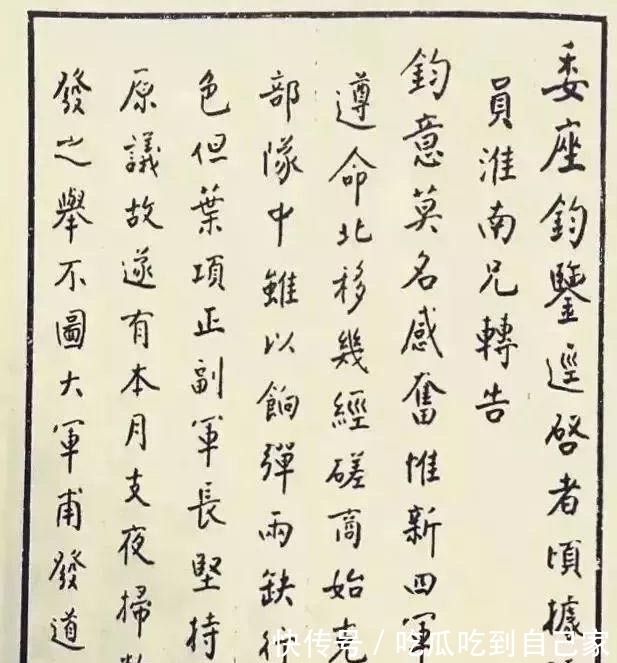 委座鈞鑒逕啓者頃據
員淮南兄轉告
鈞意莫名感奮惟新四軍
遵命北移幾經磋商始克
部隊中雖以餉彈兩缺
色但葉項正副軍長堅持
原議故遂有本月支夜掃
發之舉不圖大軍甫發道
快传号/吃瓜吃到自己家